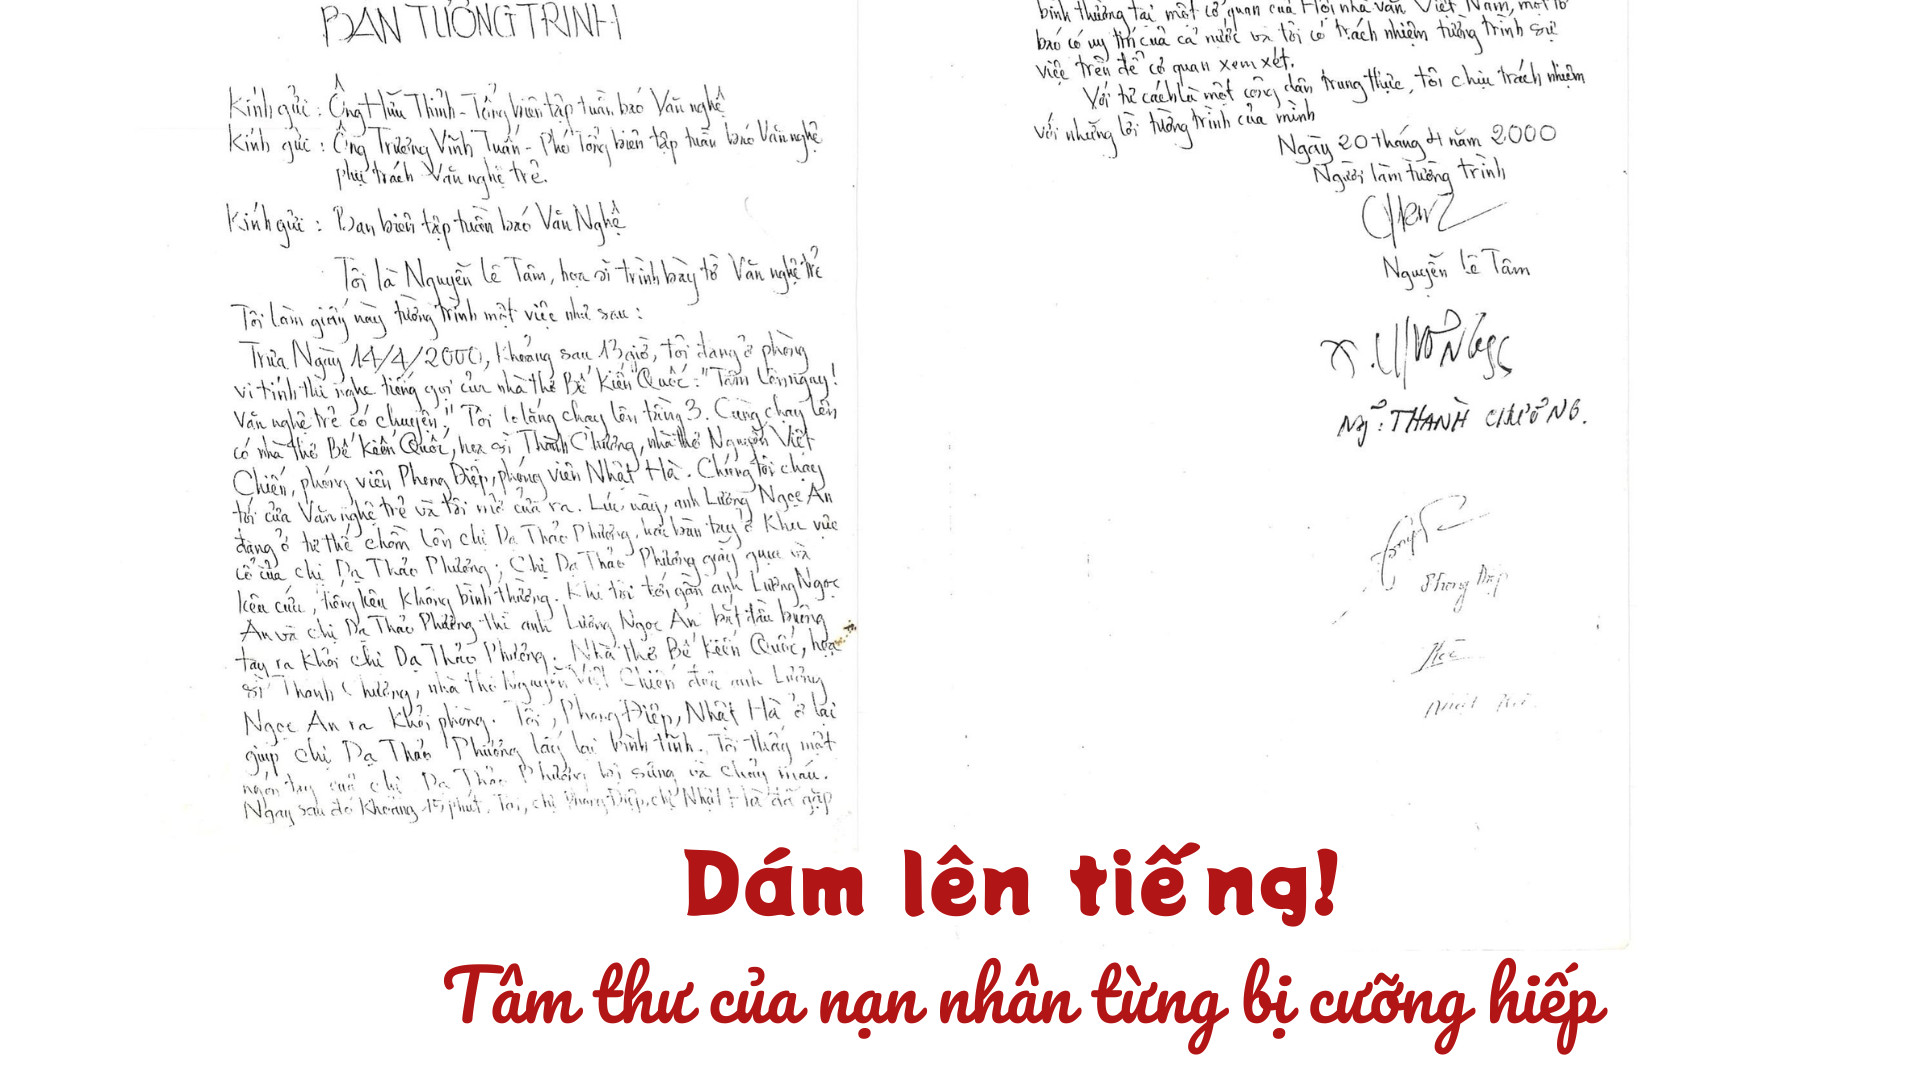 BẢN TƯỜNG TRÌNH
Kính gửi : Ông Hữu Thỉnh - Tổng biên tập tuần báo Văn nghệ
Kính gửi : Ông Trương Vĩnh Tuấn - Phó Tổng biên tập tuần báo Văn nghệ
phụ trách Văn nghệ trẻ.
Kính gửi : Ban biên tập tuần báo Văn Nghệ
Tôi là Nguyễn Lê Tâm, họa sĩ trình bày tờ Văn nghệ trẻ
Tôi làm giấy này tường trình một việc như sau :
Trưa Ngày 14/4/2000, khoảng sau 13 giờ, tôi đang ở phòng
vi tính thì nghe tiếng gọi của nhà thơ Bế Kiến Quốc : "Tâm lên ngay!
Văn nghệ trẻ có chuyện". Tôi lo lắng chạy lên tầng 3. Cùng chạy lên
có nhà thơ Bế Kiến Quốc, họa sĩ Thành Chương, nhà thơ Nguyễn Việt
Chiến, phóng viên Phong Điệp, phóng viên Nhật Hà. Chúng tôi chạy
tới cửa Văn nghệ trẻ và tôi mở cửa ra. Lúc này, anh Lương Ngọc An
đang ở tư thế chồm lên chị Dạ Thảo Phương, hai bàn tay ở khu vực
cổ của chị Dạ Thảo Phương; Chị Dạ Thảo Phương giãy giụa và
kêu cứu, tiếng kêu không bình thường. Khi tôi tới gần anh Lương Ngọc
An và chị Dạ Thảo Phương thì anh Lương Ngọc An bắt đầu buông
tay ra khỏi chị Dạ Thảo Phương. Nhà thơ Bế Kiến Quốc, họa
sĩ Thành Chương, nhà thơ Nguyễn Việt Chiến đưa anh Lương
Ngọc An ra khỏi phòng. Tôi, Phong Điệp, Nhật Hà ở lại
giúp chị Dạ Thảo Phương lấy lại bình tĩnh. Tôi thấy một
ngón tay của chị Dạ Thảo Phương bị sưng và chảy máu.
Ngay sau đó khoảng 15 phút, Tôi, chị Phong Điệp, chị Nhật Hà đã gặp
bình thường tại một cơ quan của Hội nhà văn Việt Nam, một tờ
báo có uy tín của cả nước và tôi có trách nhiệm tường trình sự
việc trên để cơ quan xem xét.
Với tư cách là một công dân trung thực, tôi chịu trách nhiệm
với những lời tường trình của mình
Ngày 20 tháng 4 năm 2000
Người làm tường trình
Nguyễn Lê Tâm
THÀNH CHƯƠNG.
Phong Điệp
Nhật Hà
Dám lên tiếng!
Tâm thư của nạn nhân từng bị cưỡng hiếp